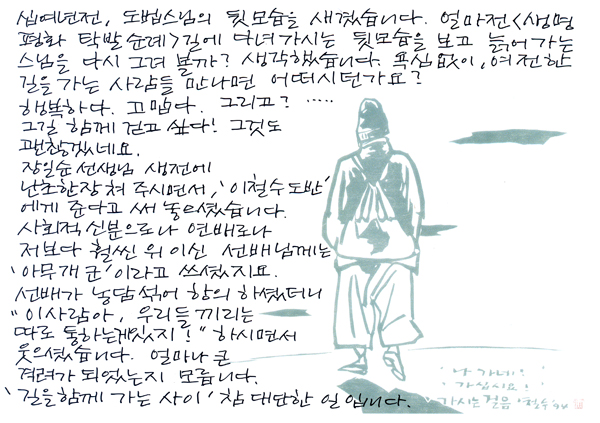 십여년전, 도법스님의 뒷모습을 새겼습니다. 얼마전<생명
평화 탁발순례>길에 다녀가시는 뒷모습을 보고 늙어가는
스님을 다시 그려 볼까? 생각했습니다. 욕심없이, 여전한
길을 가는 사람들 만나면 어떠시던가요?
행복하다. 고맙다. 그리고? .....
그길 함께 걷고 싶다! 그것도
괜찮겠네요.
장일순선생님 생전에
난초한장 쳐 주시면서, '이철수도반'
에게 준다고 써 놓으셨습니다.
사회적신분으로나 연배로나
저보다 훨씬 위이신 선배님께는
'아무개 군'이라고 쓰셨지요.
선배가 농담섞어 항의 하셨더니
"이사람아, 우리들 끼리는
따로 통하는게있지!" 하시면서
웃으셨습니다. 얼마나 큰
격려가 되었는지 모릅니다.
'길을함께 가는 사이' 참 대단한 일 입니다.
'나 가네!'
'가십시요!'
가시는 걸음 철수 94